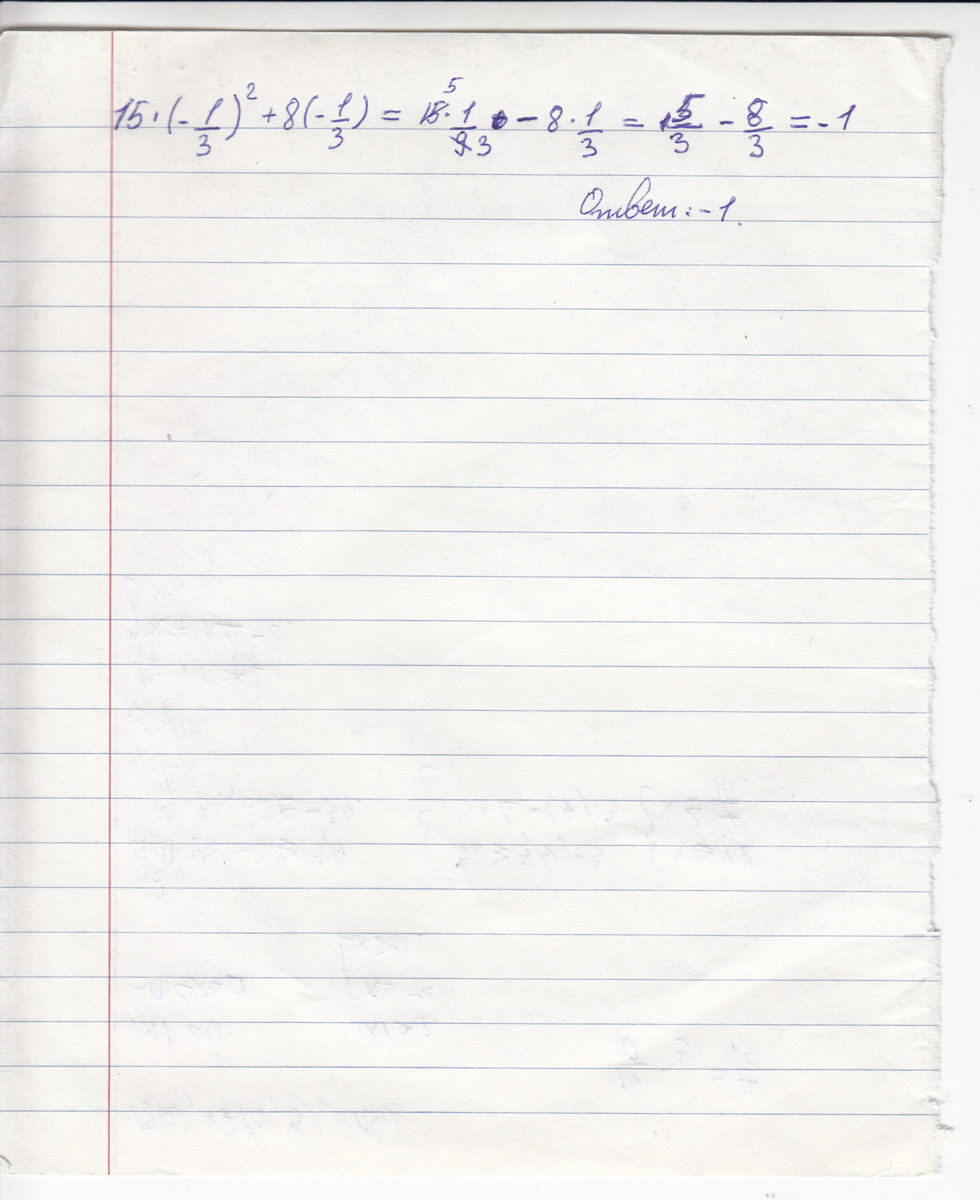 15·(-1/3)² + 8(-1/3) = 15·1/9 - 8·1/3 = 5/3 - 8/3 = -1
Ответ: -1.